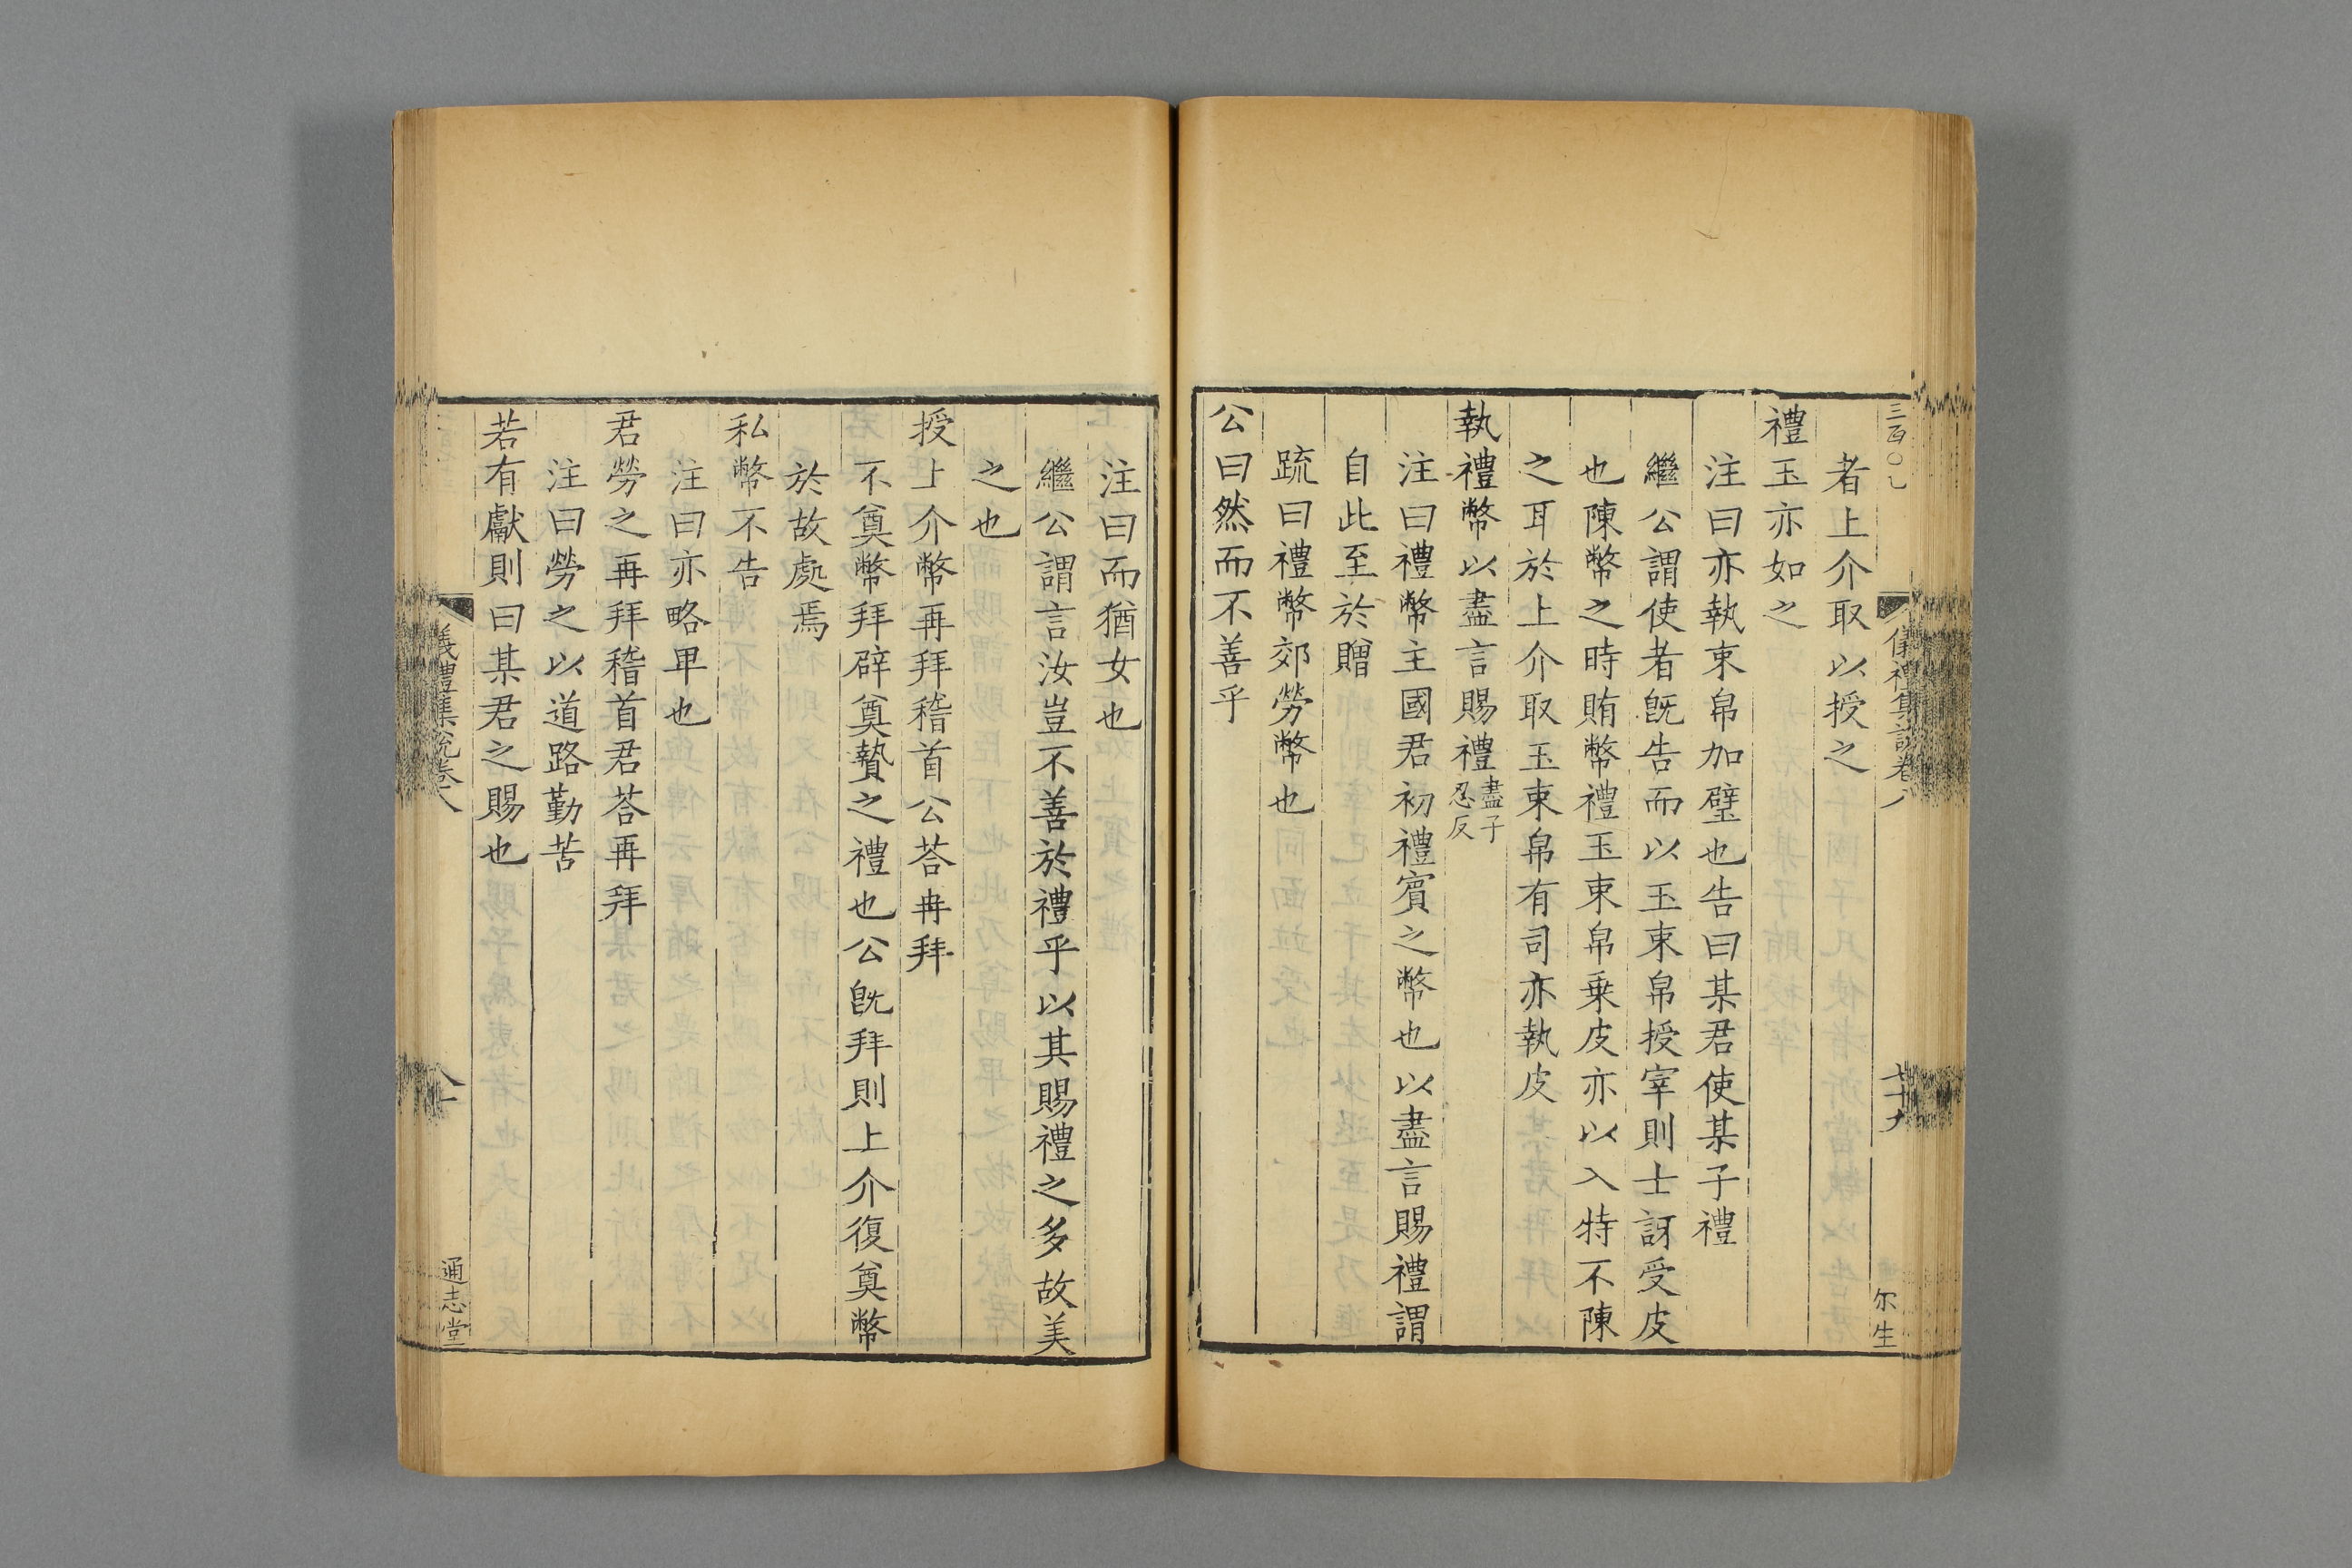 三百〇七
儀禮集說卷八
七十九
尔生
者上介取以授之
禮玉亦如之
注曰亦執束帛加璧也告曰某君使某子禮
繼公謂使者旣告而以玉束帛授宰則士訝受皮
也陳幣之時賄幣禮玉束帛乗皮亦以入特不陳
之耳於上介取玉束帛有司亦執皮
執禮幣以盡言賜禮盡子忍反
注曰禮幣主國君初禮賓之幣也以盡言賜禮謂
自此至於贈
疏曰禮幣郊勞幣也
公曰然而不善乎
注曰而猶女也
繼公謂言汝豈不善於禮乎以其賜禮之多故美
之也
授上介幣再拜稽首公荅再拜
不奠幣拜辟奠贄之禮也公旣拜則上介復奠幣
於故處焉
私幣不告
注曰亦略卑也
君勞之再拜稽首君荅再拜
注曰勞之以道路勤苦
若有獻則曰某君之賜也
儀禮集說卷八
通志堂